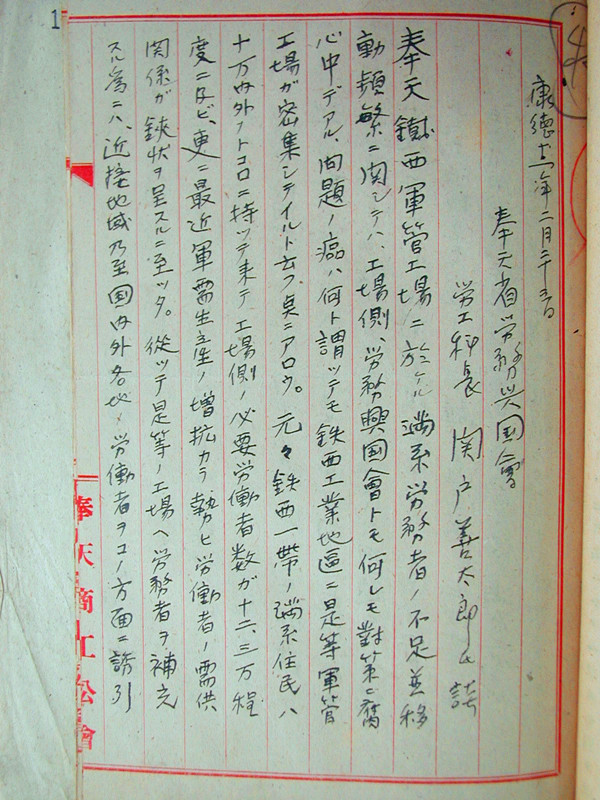 1
康德十一年二月二十三日
奉天省労務興国會
労工科長 関戸善太郎氏談
奉天鐵西軍管工場ニ於ケル満系労務者ノ不足並移
動頻繁ニ関シテハ、工場側、労務興国會トモ何レモ對策ニ腐
心中デアル、問題ノ癌ハ何ト謂ツテモ鉄西工業地區ニ是等軍管
工場が密集シテイルト云フ点ニアロウ。元々鉄西一帯ノ満系住民ハ
十万内外ノトコロニ持ツテ来テ工場側ノ必要労働者数ガ十二、三万程
度ニ及ビ、更ニ最近軍需生産ノ増拡カラ勢ヒ労働者ノ需供
関係が鋏状ヲ呈スルニ至ツタ。從ツテ是等ノ工場ヘ労務者ヲ補充
スル為ニハ、近接地域乃至国内外各地ノ労働者ヲコノ方面ニ誘引
奉天商工公會